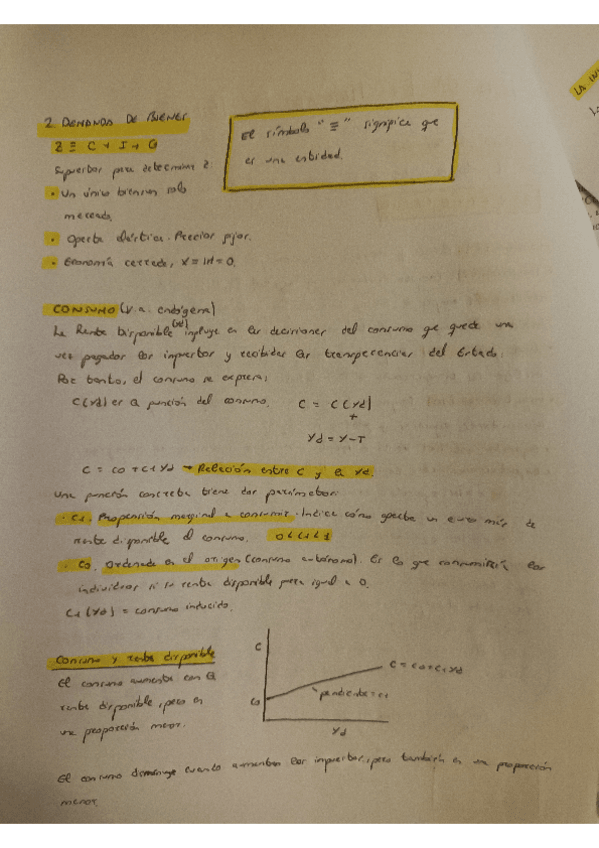 2. DEMANDA DE BIENES
Z ≡ C + I + G
El símbolo "≡" significa que
es una entidad.
Supuestos para determinar Z:
• Un único bien, un solo
mercado.
• Oferta elástica. Precios fijos.
• Economía cerrada, X = IM = 0.
CONSUMO (V.a. endógena)
La Renta Disponible (Yd) influye en las decisiones del consumo que quede una
vez pagados los impuestos y recibidas las transferencias del Estado.
Por tanto, el consumo se expresa:
C(Yd) es la función del consumo. C = C(Yd)
+
Yd = Y - T
C = c0 + c1 Yd → Relación entre C y la Yd.
Una función concreta tiene dos parámetros:
• C1. Propensión marginal a consumir. Indica cómo afecta un euro más de
renta disponible al consumo. 0<c1<1
• C0. Ordenada en el origen (consumo autónomo). Es lo que consumirían los
individuos si la renta disponible fuera igual a 0.
C1(Yd) = consumo inducido.
Consumo y renta disponible
El consumo aumenta con la
renta disponible, pero en
una proporción menor.
C
C = c0 + c1 Yd
pendiente = c1
C0
Yd
El consumo disminuye cuando aumentan los impuestos, pero también en una proporción
menor.
LA